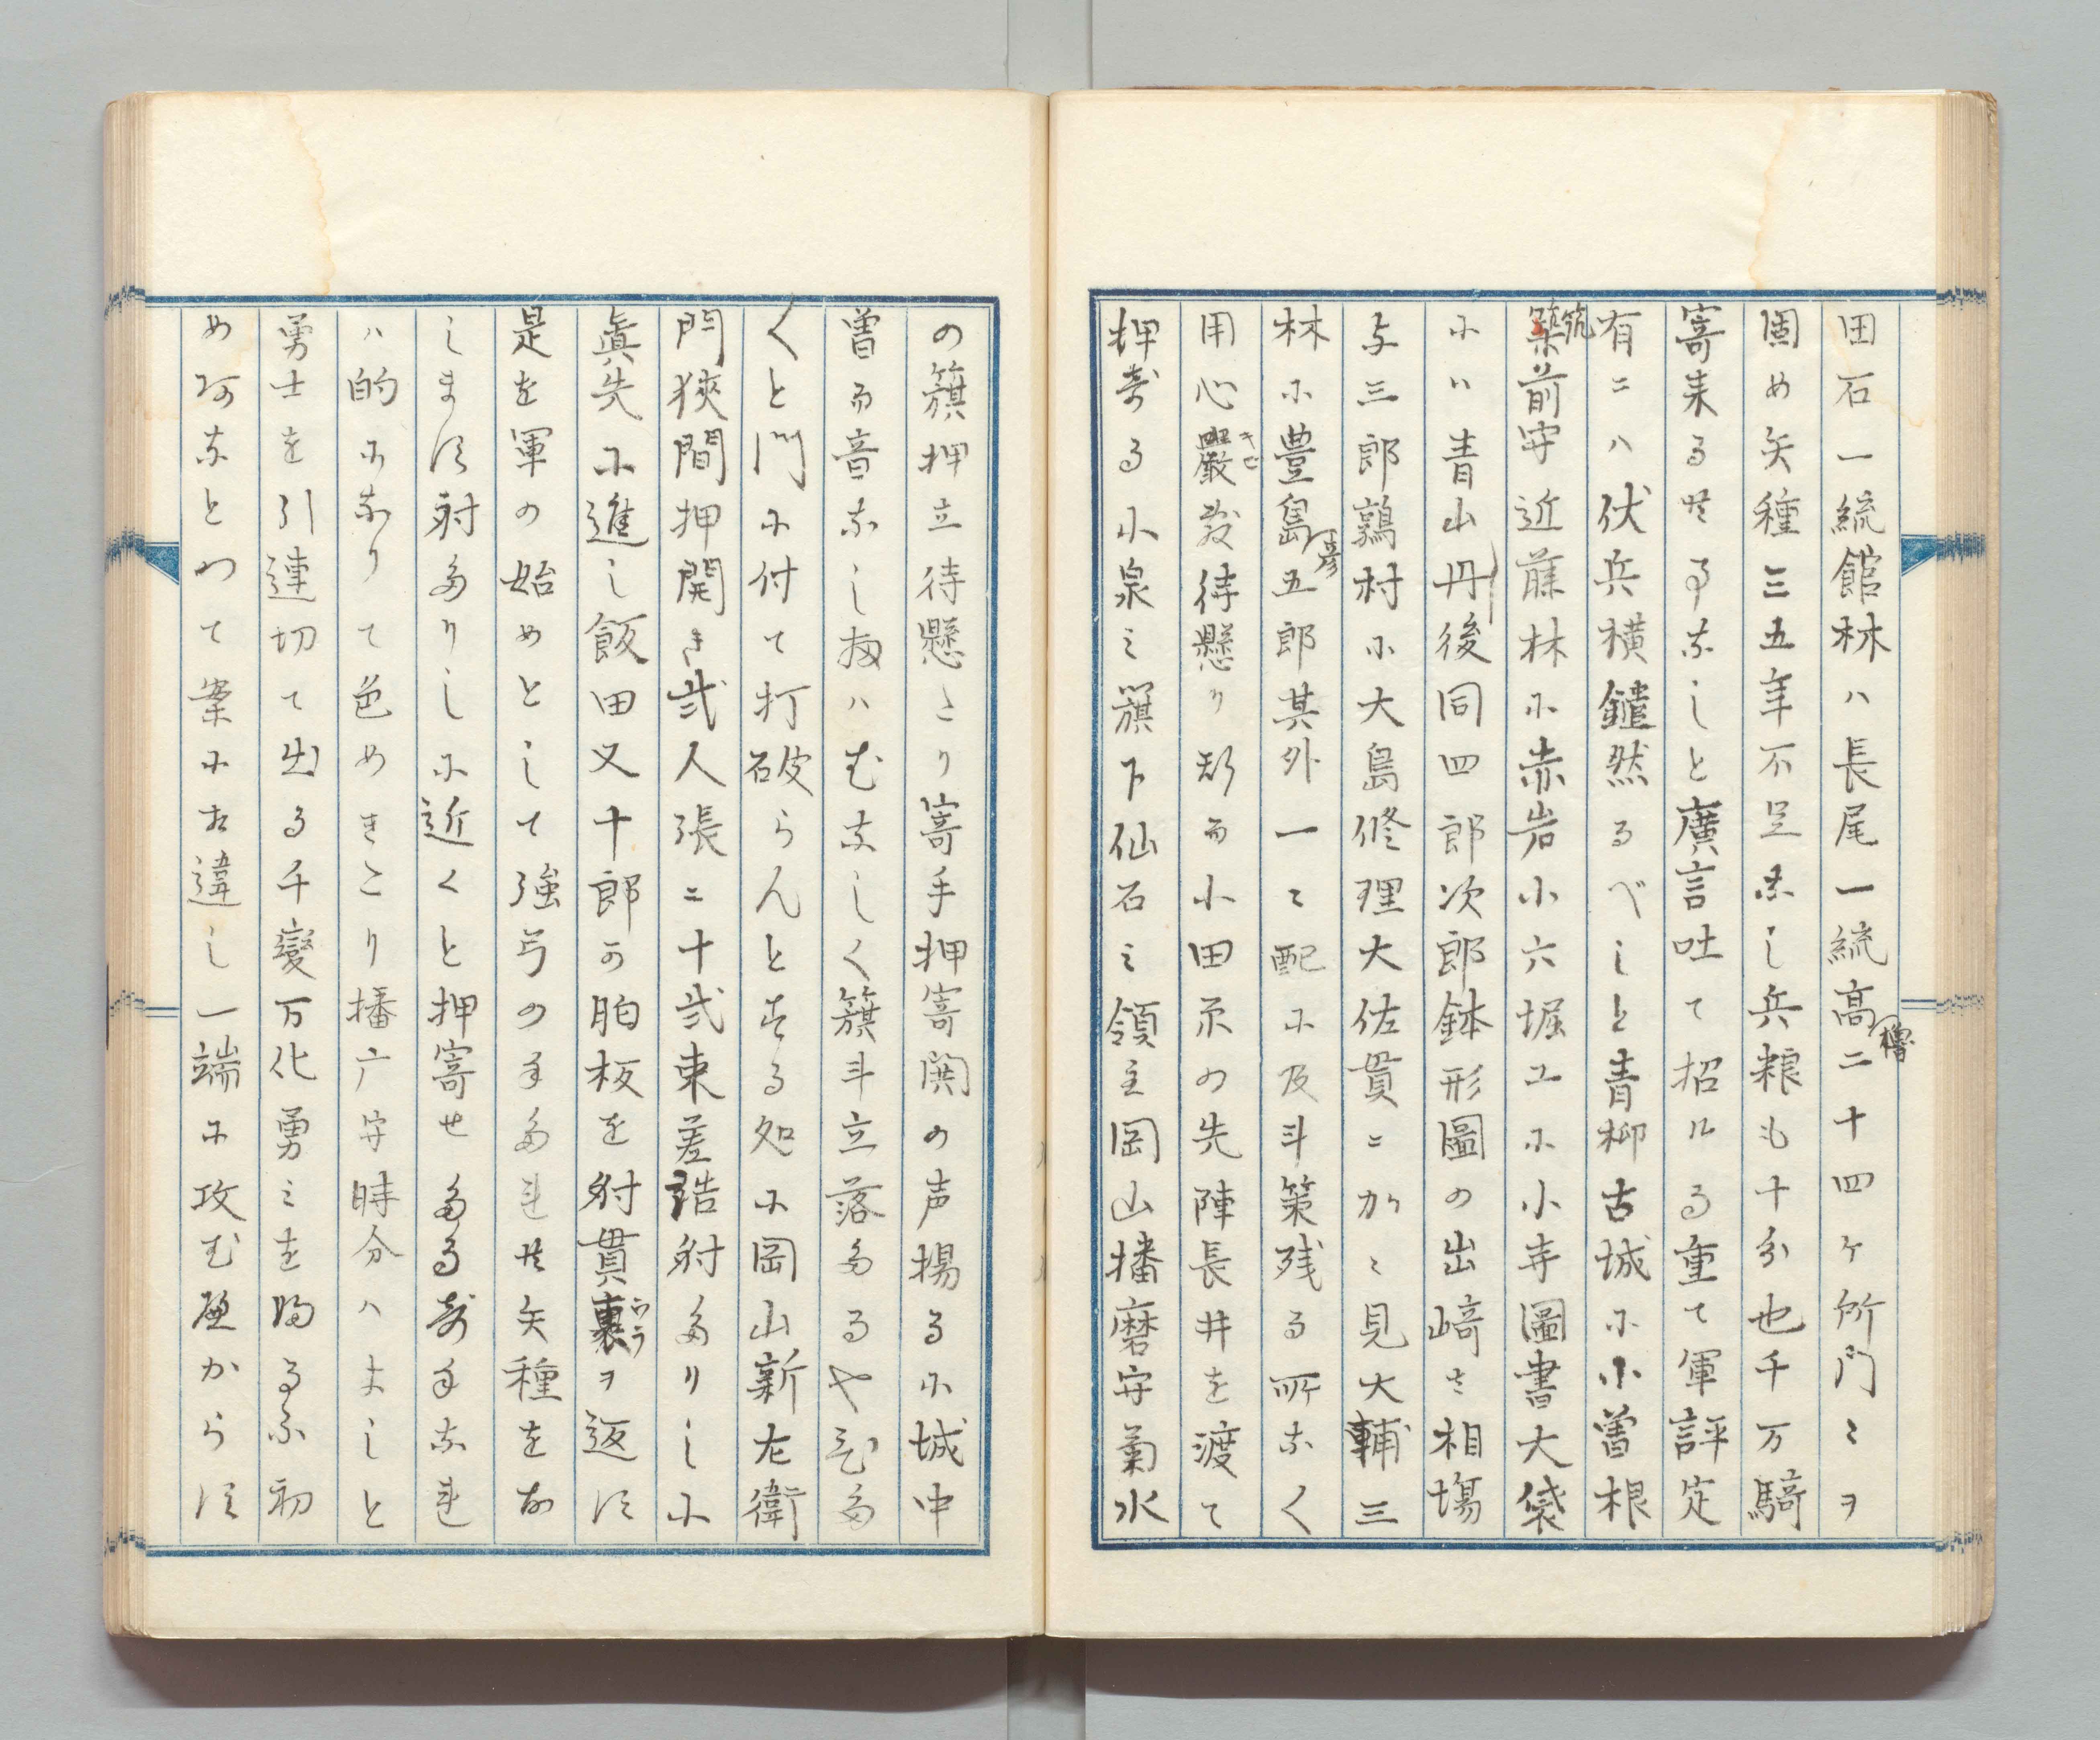 田石一統館林ハ長尾一統高櫓二十四ケ所門〻ヲ
固め矢種三五年不足無し兵粮も十分也千万騎
寄来る共事なしと廣言吐て招ルる重て軍評定
有ニハ伏兵横鑓然るべしと青柳古城小曽根
築筑前守近藤林小赤岩小六堀工小小寺圖書大袋
小ハ青山丹後同四郎次郎鉢形圖の出﨑さ相塲
与三郎鶉村小大島修理大佐貫ニかゝ見大輔三
林小豊島彦五郎其外一〻配小及斗策残る所なく
用心嚴キビ敷待懸り斯而小田原の先陣長井を渡て
押寄る小泉之籏下仙石之領主岡山播磨守菊水
の籏押立待懸たり寄手押寄関の声揚る小城中
曽而音なし拗ハむなしく籏斗立落多るや飛多
くと門小付て打破らんとする処小岡山新左衛
門狹間押開き弐人張ニ十弐束差詰射多りし小
眞先小進し飯田又十郎の胸板を射貫裏うらヲ返す
是を軍の始めとして強弓の手多れ共矢種をお
します射多りし小近くと押寄せ多る寄手なれ
ハ的小なりて色めきたり播广守時分ハよしと
勇士を引連切て出る千變万化勇之を
め阿なとつて案小相違し一端小攻む

からす